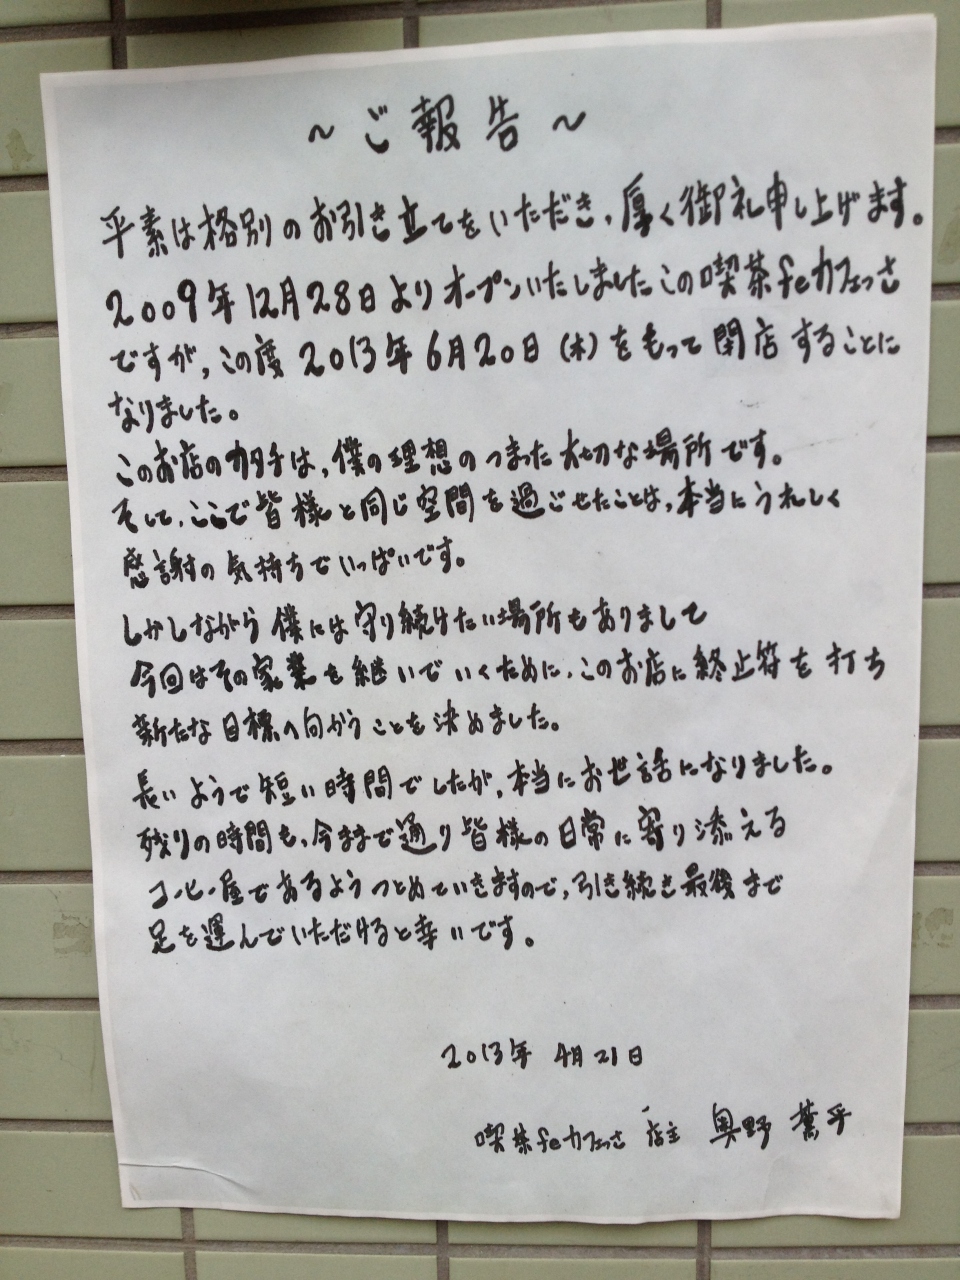 ～ご報告～
平素は格別のお引き立てをいただき、厚く御礼申し上げます。
2009年12月28日よりオープンいたしましたこの喫茶feカフェっさ
ですが、この度2013年6月20日(木)をもって閉店することに
なりました。
このお店のカタチは、僕の理想のつまった大切な場所です。
そして、ここで皆様と同じ空間を過ごせたことは、本当にうれしく
感謝の気持ちでいっぱいです。
しかしながら僕には守り続けたい場所もありまして
今回はその家業を継いでいくために、このお店に終止符を打ち
新たな目標へ向かうことを決めました。
長いようで短い時間でしたが、本当にお世話になりました。
残りの時間も、今まで通り皆様の日常に寄り添える
コーヒー屋であるようつとめていきますので、引き続き最後まで
足を運んでいただけると幸いです。
2013年 4月21日
喫茶feカフェっさ 店主 奥野 薫平